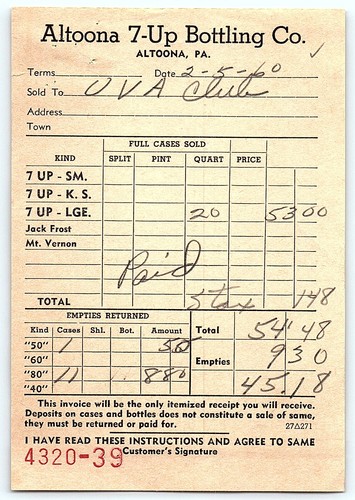 Altoona 7-Up Bottling Co.
ALTOONA, PA.
Terms Date 2-5-60
Sold To UVA Club
Address
Town
FULL CASES SOLD
KIND SPLIT PINT QUART PRICE
7 UP - SM.
7 UP - K. S.
7 UP - LGE. 20 53 00
Jack Frost
Mt. Vernon
Paid
TOTAL S tax 1 48
EMPTIES RETURNED
Kind Cases Shl. Bot. Amount
Total 54 48
"50" 1 50
"60"
Empties 9 30
"80" 11 880
"40"
45.18
This invoice will be the only itemized receipt you will receive.
Deposits on cases and bottles does not constitute a sale of same,
they must be returned or paid for. 27△271
I HAVE READ THESE INSTRUCTIONS AND AGREE TO SAME
4320-39 Customer's Signature